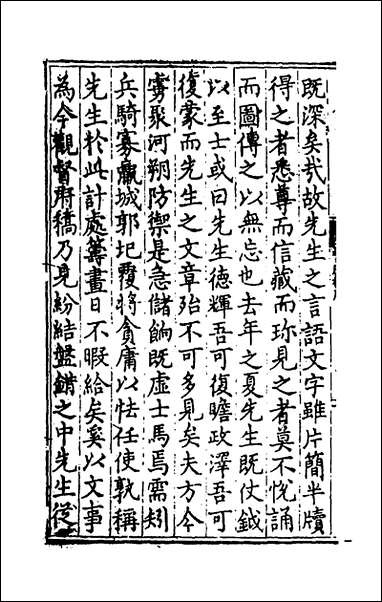 既深矣哉故先生之言語文字雖片簡半牘
得之者悉尊而信藏而珎見之者莫不悅誦
而圖傳之以無忘也去年之夏先生既仗鉞
以至士或曰先生德輝吾可復瞻政澤吾可
復蒙而先生之文章殆不可多見矣夫方今
雾聚河朔防禦是急儲餉既虛士馬焉需矧
兵騎寡羸城郭圮覆将貪庸以怯任使孰稱
先生於此計處籌畫日不暇給矣奚以文事
為今觀督府稿乃見紛結盤錯之中先生從